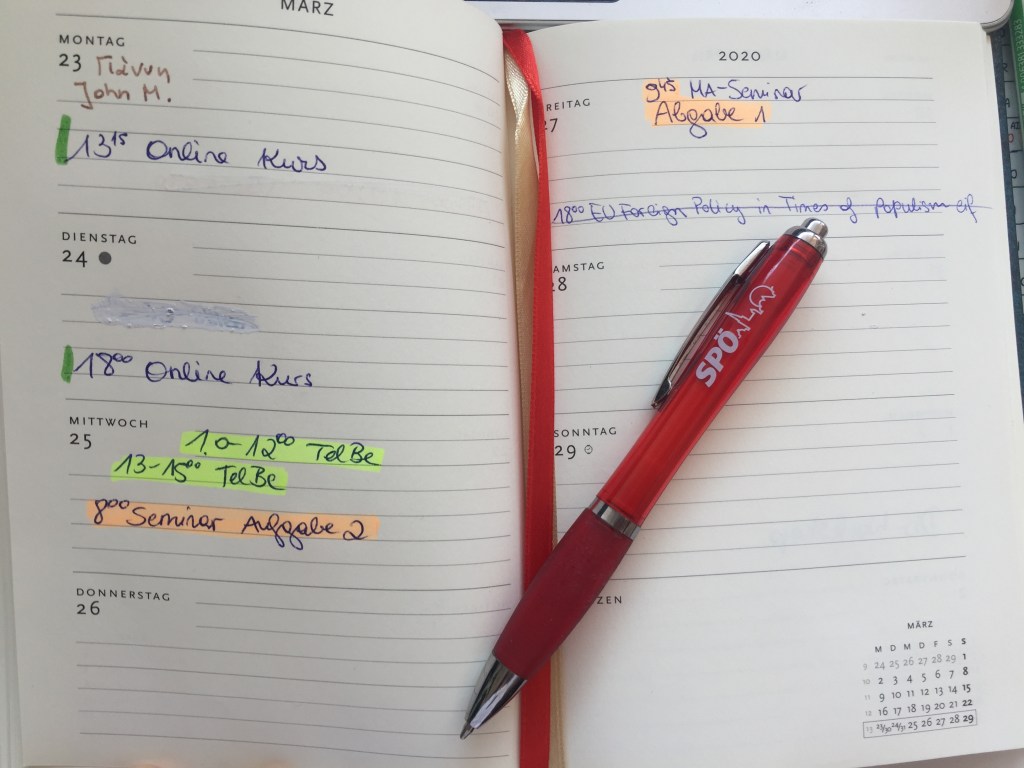 MÄRZ
MONTAG
23 Γιάννη
John M.
13¹⁵ Online Kurs
DIENSTAG
24
18⁰⁰ Online Kurs
MITTWOCH
25
10-12⁰⁰ TelBe
13-15⁰⁰ TelBe
8⁰⁰ Seminar Aufgabe 2
DONNERSTAG
26
2020
REITAG
27
9⁴⁵ MA-Seminar
Abgabe 1
18⁰⁰ EU Foreign Policy in Times of Populism eif
AMSTAG
28
SONNTAG
29
ZEN
SPÖ
MÄRZ
M D M D F S S
9 24 25 26 27 28 29 1
10 2 3 4 5 6 7 8
11 9 10 11 12 13 14 15
12 16 17 18 19 20 21 22
13 23/30 24/31 25 26 27 28 29